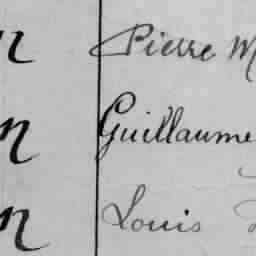 n Pierre M
n Guillaume
n Louis